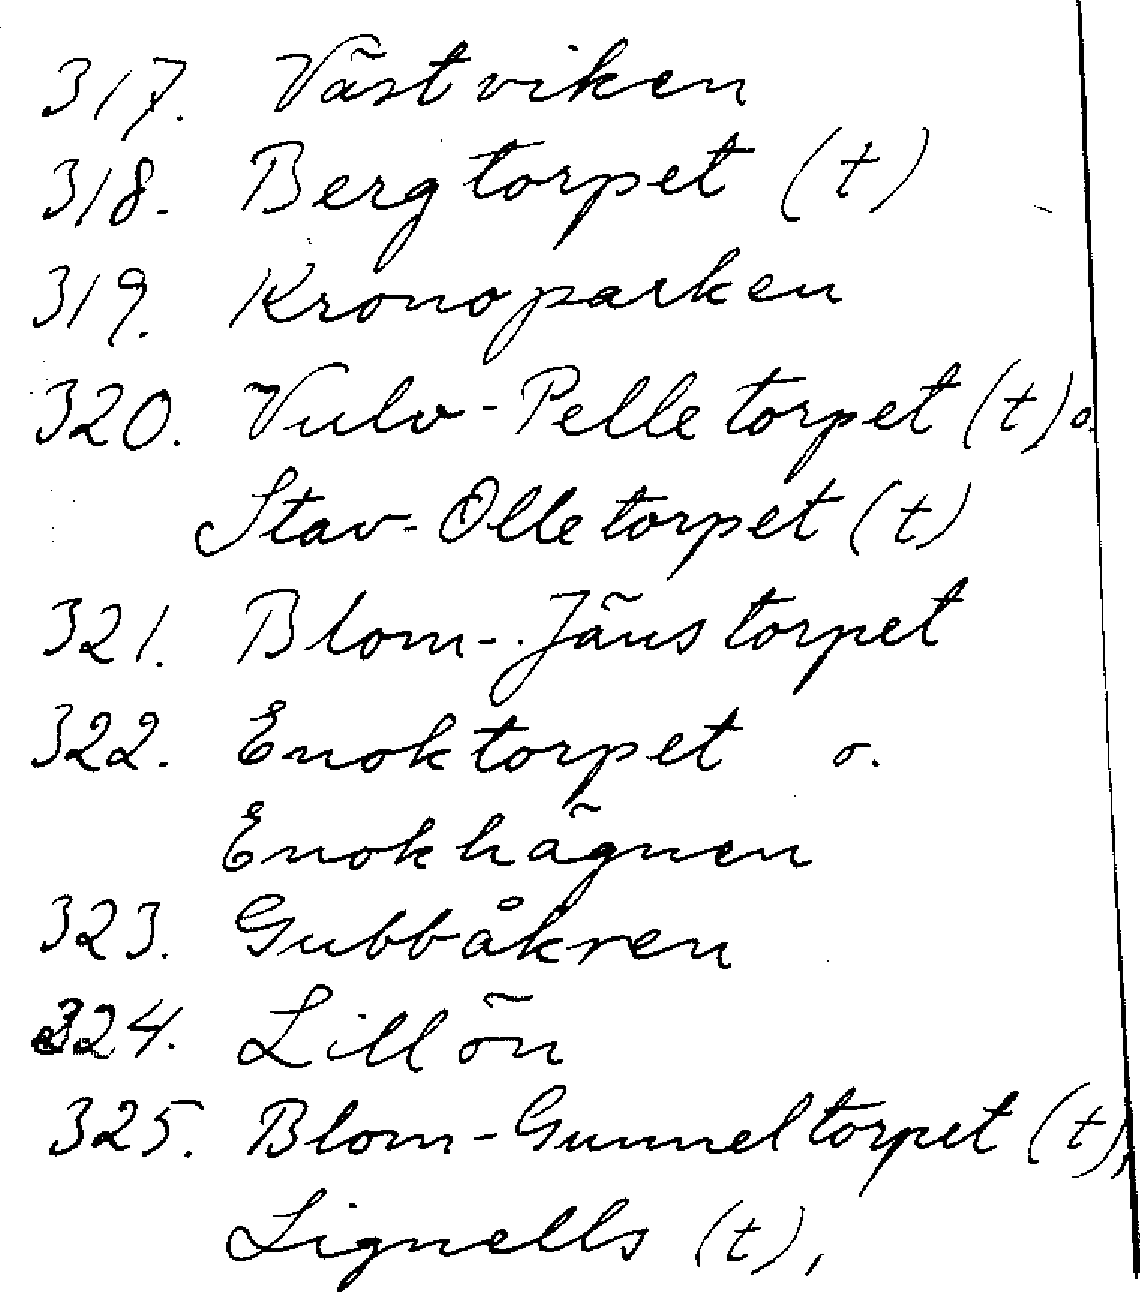 317. Västviken
318. Bergtorpet (t)
319. Kronoparken
320. Vulv-Pelletorpet (t) o.
Stav-Olletorpet (t)
321. Blom-Jänstorpet
322. Enoktorpet o.
Enokhägnen
323. Gubbåkren
324. Lillön
325. Blom-Gunneltorpet (t),
Lignells (t),